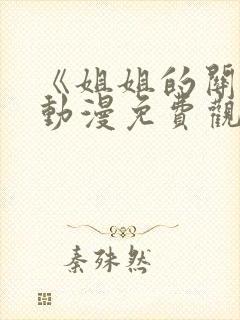 《姐姐的閣
動漫免費觀
秦殊然